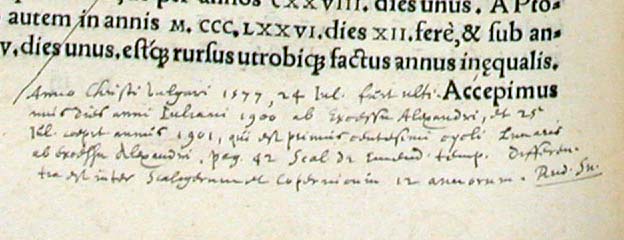 per annos CXXVIII. dies unus. A Pto-
autem in annis M. CCC.LXXVI. dies XII. ferè, & sub an-
v, dies unus. estq; rursus utrobiq; factus annus inęqualis.
Anno Christi vulgari 1577, 24 Iul. fuit ulti- Accepimus
mus dies anni Iuliani 1900 ab Excessu Alexandri, et 25
Iul. coepit annus 1901, qui est primus centesimi cycli Lunaris
ab excessu Alexandri. pag. 42 Scal de Emend. temp. Differen-
tia est inter Scaligerum et Copernicum 12 annorum. Rud. Sn.